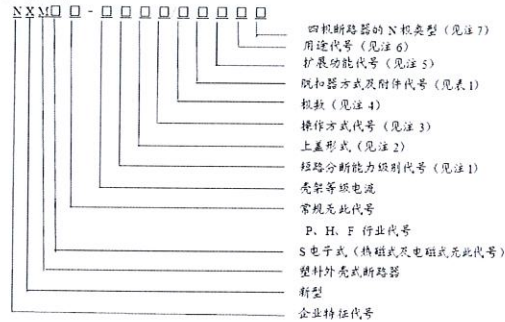 NXM□□-□□□□□□□□□
四极断路器的 N 极类型（见注 7）
用途代号（见注 6）
扩展功能代号（见注 5）
脱扣器方式及附件代号（见表 1）
极数（见注 4）
操作方式代号（见注 3）
上盖形式（见注 2）
短路分断能力级别代号（见注 1）
壳架等级电流
常规无此代号
P、H、F 行业代号
S 电子式（热磁式及电磁式无此代号）
塑料外壳式断路器
新型
企业特征代号